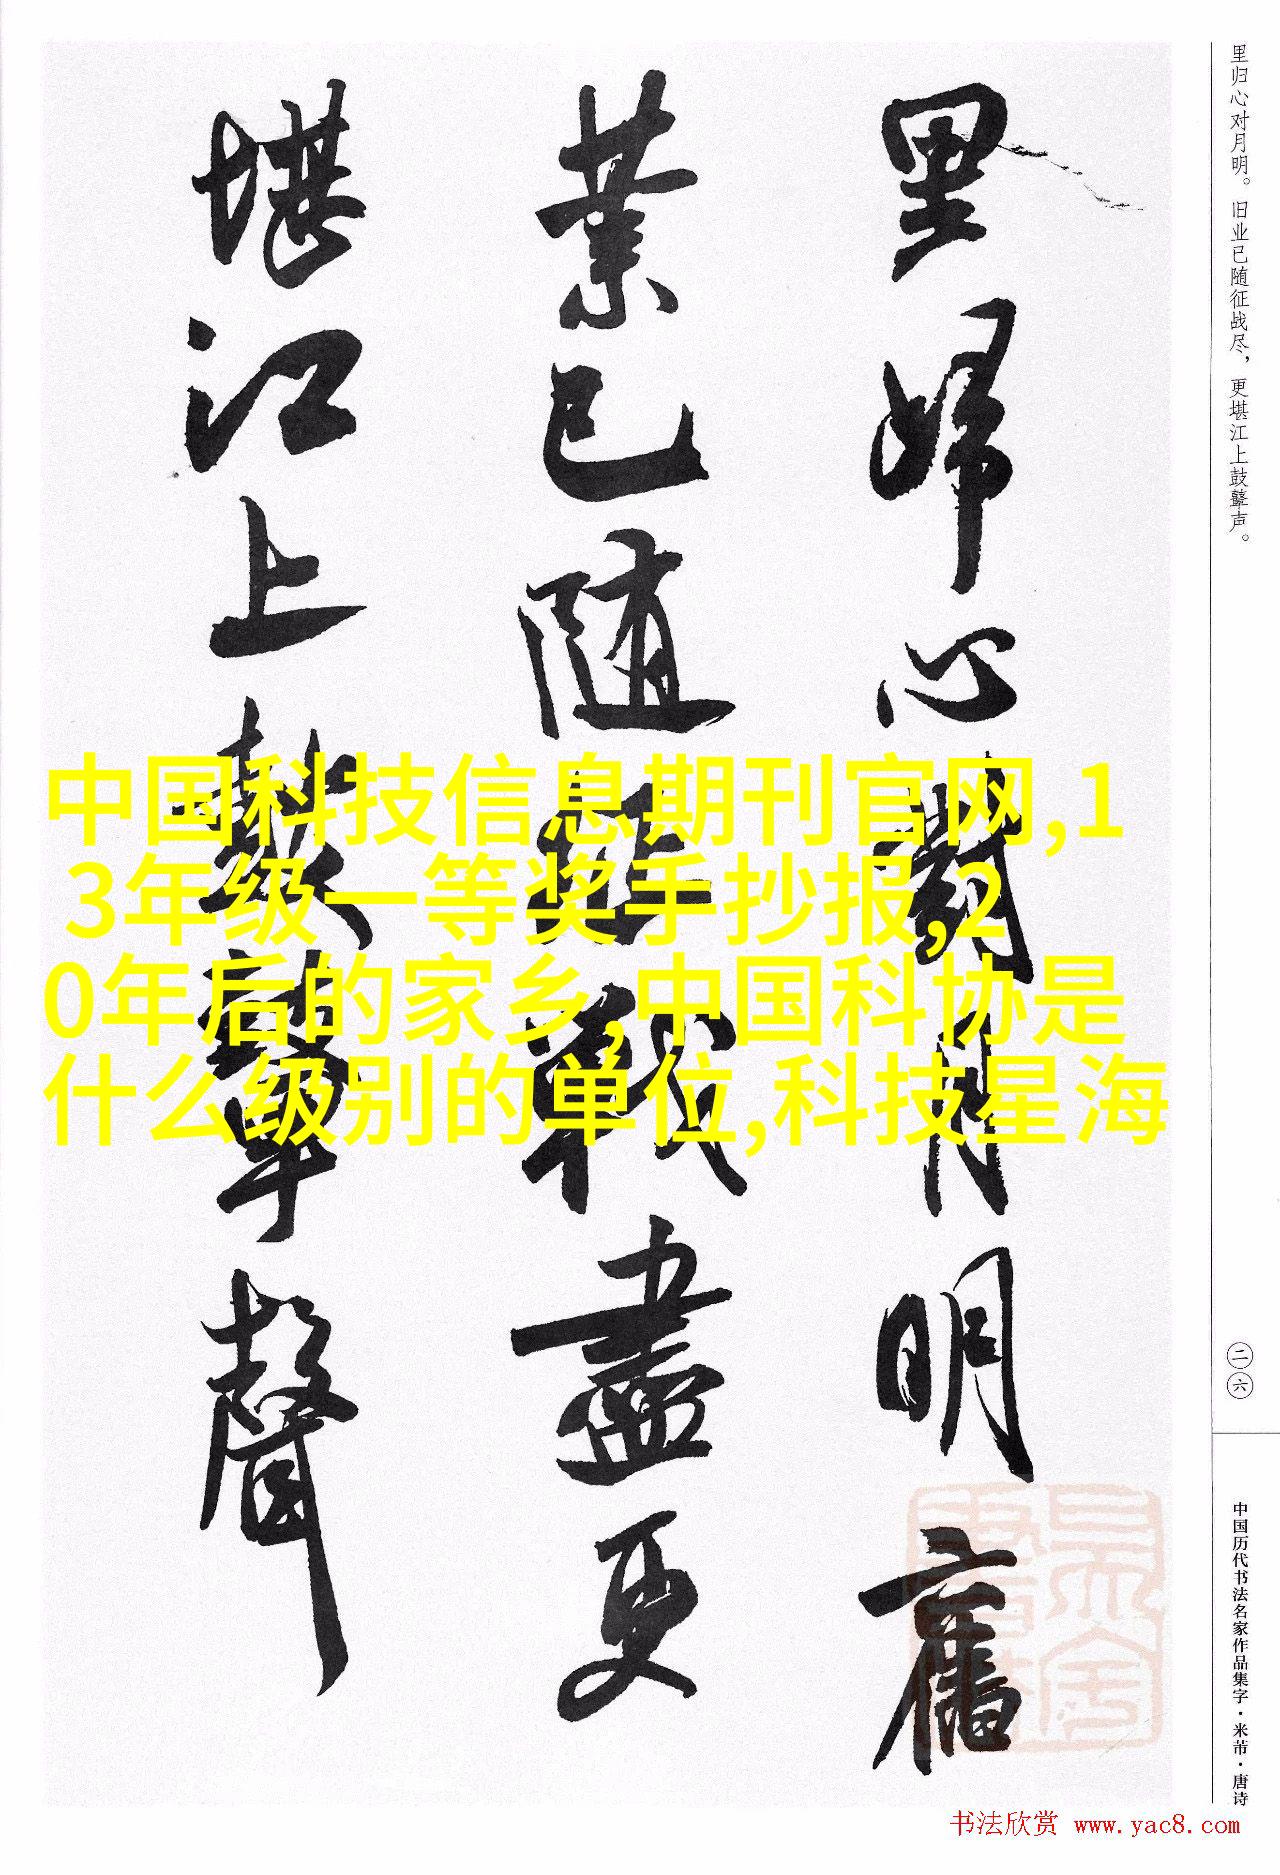 里归心对月明。旧业已随征战尽，更堪江上鼓鼙声。
里歸心對月明舊
業已随征戰盡更
堪江上鼓鼙聲
中国科技信息期刊官网,1
3年级一等奖手抄报,2
0年后的家乡,中国科协是
什么级别的单位,科技星海
二六
中国历代书法名家作品集字·米芾·唐诗
书法欣赏 www.yac8.com